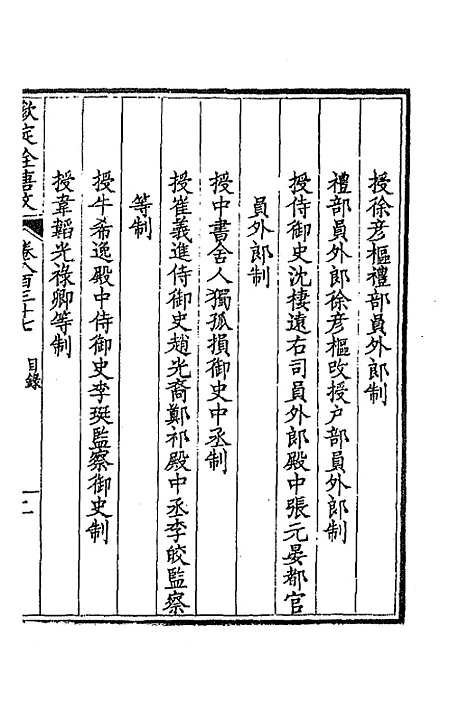 授徐彦樞禮部員外郎制
禮部員外郎徐彦樞改授户部員外郎制
授侍御史沈棲遠右司員外郎殿中張元晏都官
員外郎制
授中書舍人獨孤損御史中丞制
授崔義進侍御史趙光裔鄭祁殿中丞李皎監察
等制
授牛希逸殿中侍御史李珽監察御史制
授韋韜光祿卿等制
欽定全唐文
卷八百三十七
目錄